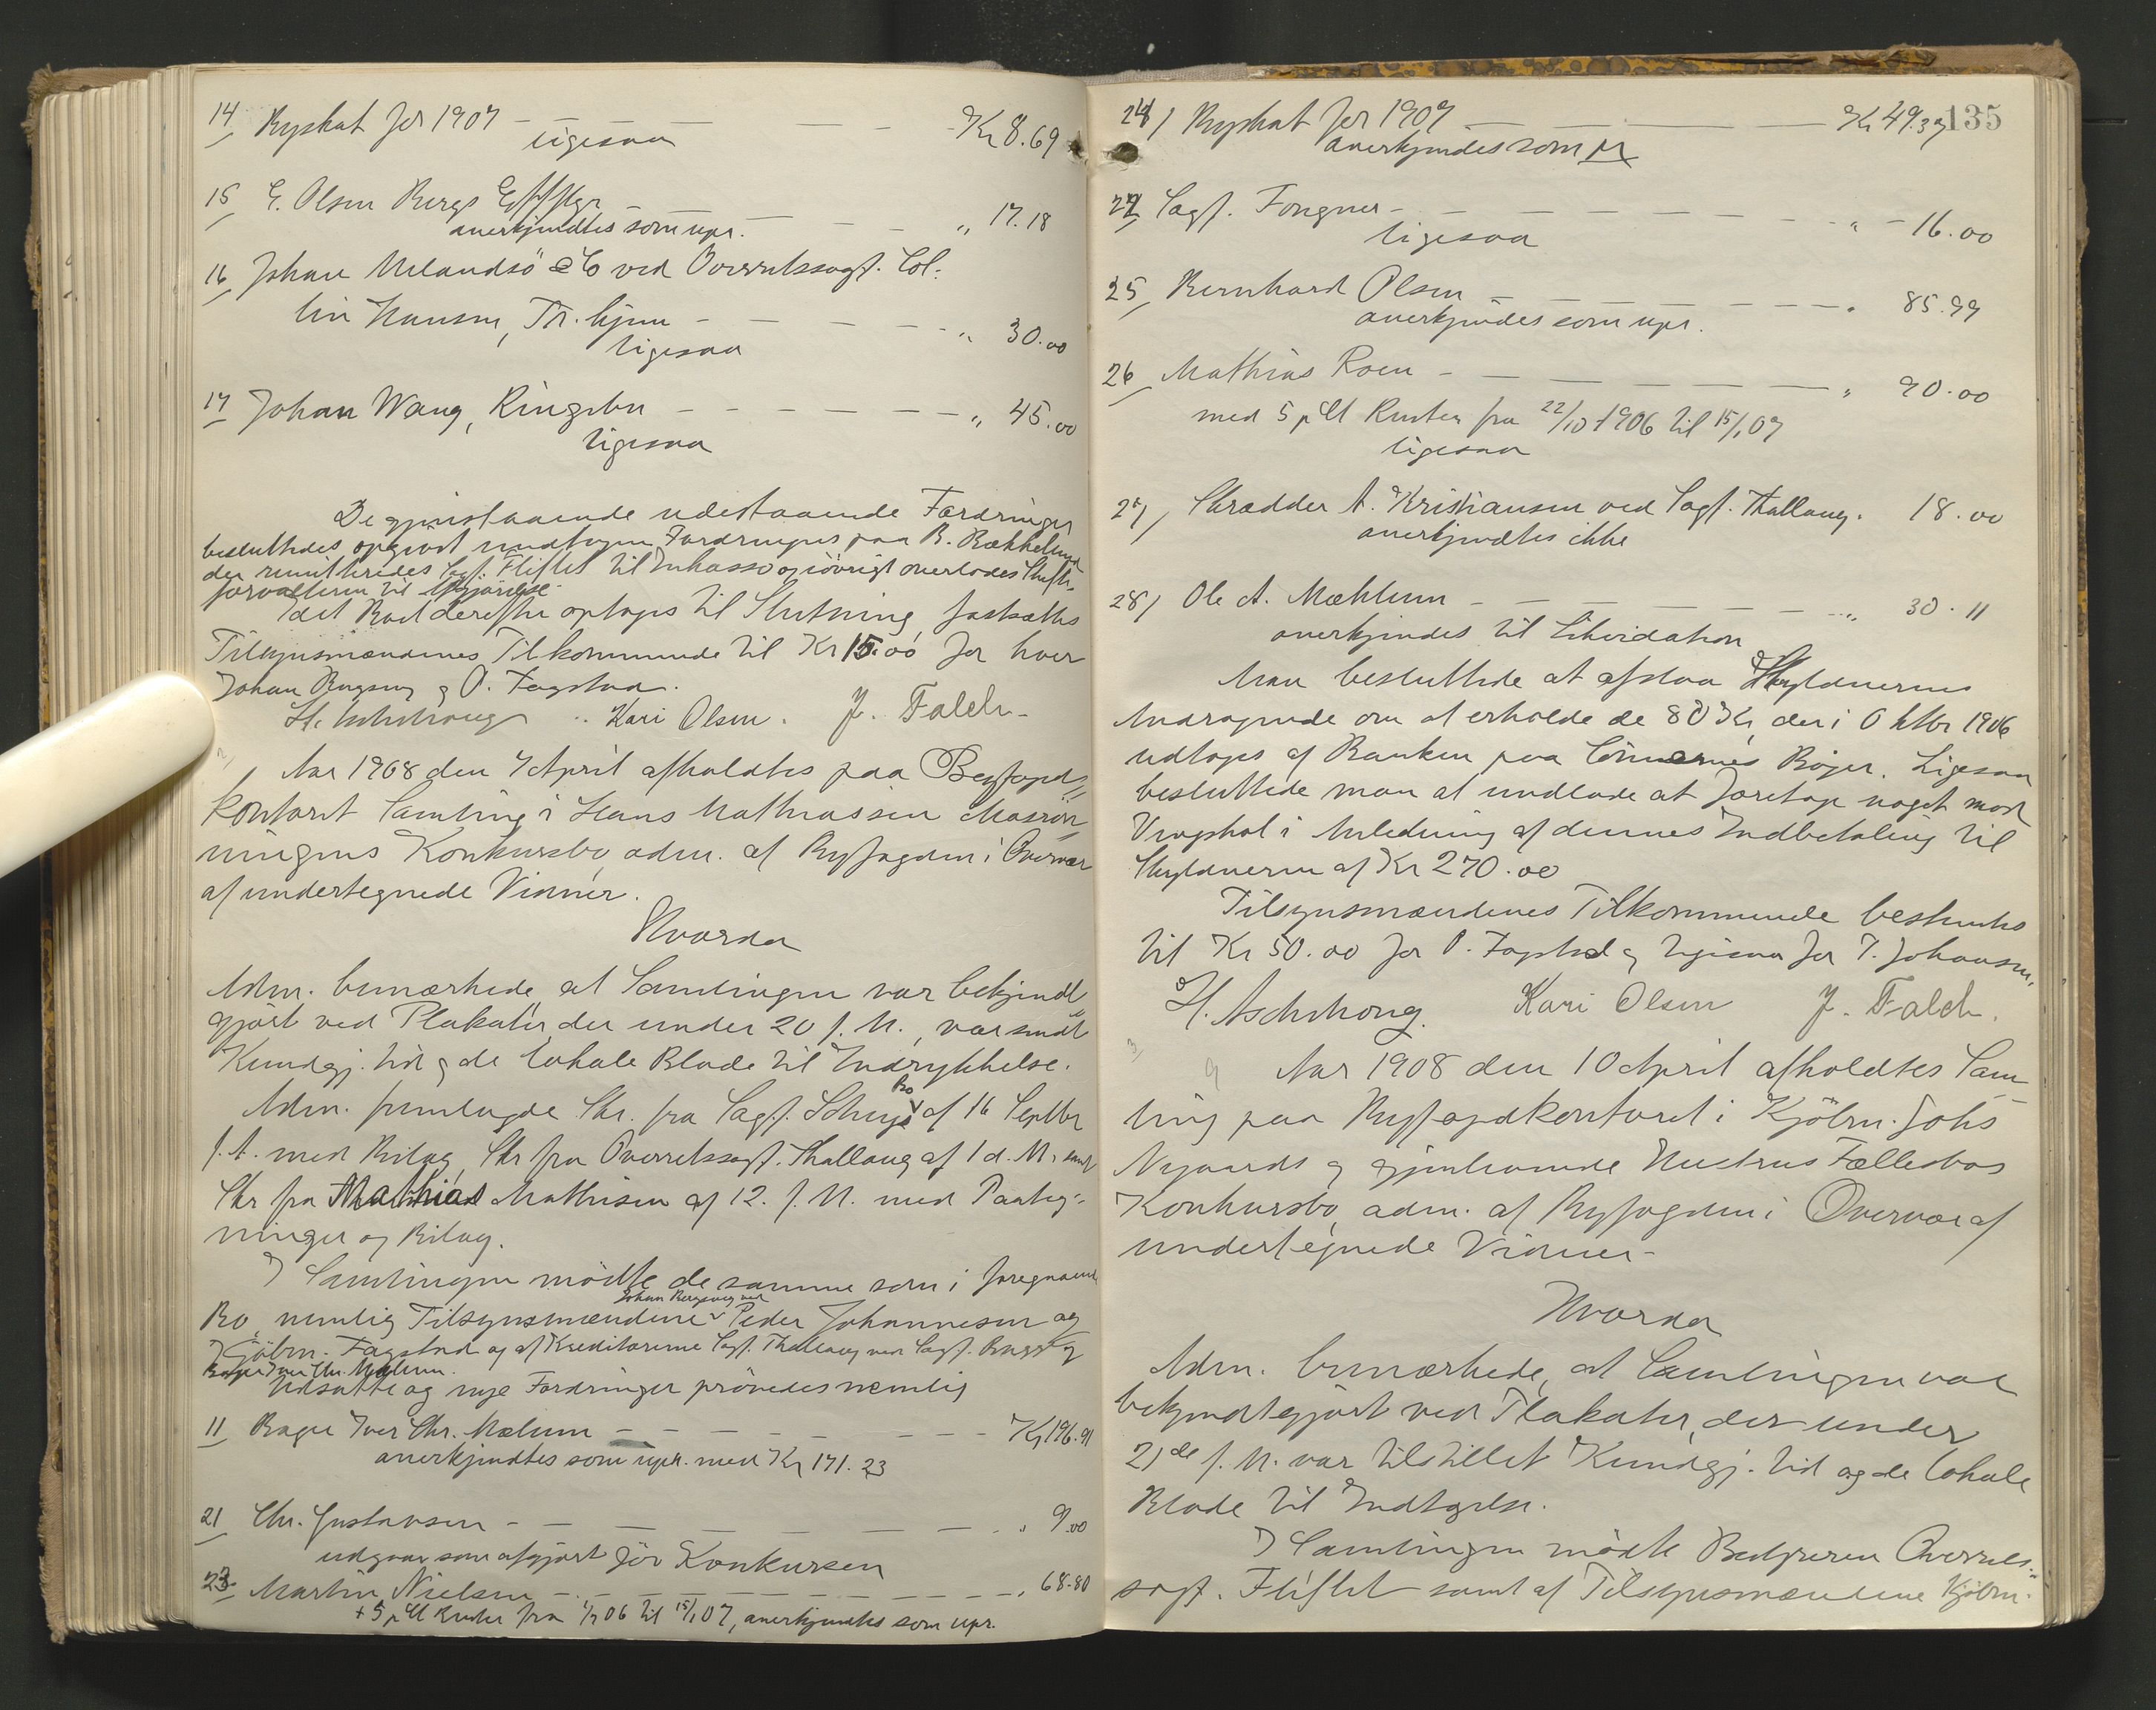 14/ Byskat for 1907 — — — — Kr 8.69
ligesaa
15/ E. Olsen Bergs Eftflgr — — — — „ 17.18
anerkjendtes som upr.
16/ Johan Melandsö & Co ved Overretssagf. Col-
lin Hansen, Tr.hjem — — — — „ 30.00
ligesaa
17/ Johan Wang, Ringebu — — — — „ 45.00
ligesaa
De gjenstaaende udestaaende Fordringer
besluttedes opgivet undtagen Fordringen paa B. Bækkelund
der remitteredes Sagf. Fliflet til Inkasso og iövrigt overlodes Skifte-
forvalteren til Afgjörelse.
Idet Boet derefter optoges til Slutning fastsattes
Tilsynsmændenes Tilkommende til Kr 15.00 for hver
Johan Bugsvej & O. Fagstad.
H. Aschehoug .. Kari Olsen. J. Falch.
Aar 1908 den 7 April afholdtes paa Byfoged-
kontoret Samling i Hans Mathiassen
Konkursbo, adm. af Byfogden i Overvær
af undertegnede Vidner.
Hvorda
Adm. bemærkede, at Samlingen var bekjendt
gjort ved Plakater, der under 20 f. M., var sendt
Kundgj. tid. & de lokale Blade til Indrykkelse.
Adm. fremlagde Skr. fra Sagf. Schujes bo af 16 Septbr
f. A. med Bilag, Skr fra Overretssagf. Thallaug af 1 d. M. samt
Skr fra Mathias Mathisen af 12. f. M. med Paateg-
ninger og Bilag.
I Samlingen mödte de samme som i foregaaende
Johan Bugsvej ved
Bo, nemlig Tilsynsmændene Peder Johannesen og
Kjöbm. Fagstad og af Kreditorerne Sagf. Thallaug ved Sagf. Bugge og
Bager Iver Chr. Mælum.
Udsatte og nye Fordringer prövedes nemlig
11/ Bager Iver Chr. Mælum — — — — Kr 196.91
anerkjendtes som upr. med Kr 171.23
21/ Chr. Gustavsen — — — — „ 9.00
udgaar som afgjort för Konkursen
23/ Martin Nielsen — — — — „ 68.80
+ 5 pCt Renter fra 1/7 06 til 15/1 07, anerkjendtes som upr.
135
24/ Byskat for 1907 — — — — Kr 49.37
anerkjendes som
22/ Sagf. Fongner — — — — „ 16.00
ligesaa
25/ Bernhard Olsen — — — — „ 85.99
anerkjendes som upr.
26/ Mathias Roen — — — — „ 90.00
med 5 pCt Renter fra 22/10 1906 til 15/1 07
ligesaa
27/ Skrædder A. Kristiansen ved Sagf. Thallaug. 18.00
anerkjendtes ikke
28/ Ole A. Mæhlum — — — — „ 30.11
anerkjendes til Likvidation
Man besluttede at afslaa Skyldnerens
Andragende om at erholde de 80 Kr, der i Oktbr 1906
udtoges af Banken paa Börnenes Böger. Ligesaa
besluttede man at undlade at foretage noget mod
i Anledning af dennes Indbetaling til
Skyldneren af Kr 270.00
Tilsynsmændenes Tilkommende bestemtes
til Kr 50.00 for O. Fagstad & ligesaa for P. Johansen.
H. Aschehoug. Kari Olsen J. Falch.
Aar 1908 den 10 April afholdtes Sam-
ling paa Byfogedkontoret i Kjöbm. Johs
Nygaards & gjenlevende Hustrus Fællesbos
Konkursbo, adm. af Byfogden i Overvær af
undertegnede Vidner.
Hvorda
Adm. bemærkede, at Samlingen var
bekjendtgjort ved Plakater, der under
21de f. M. var tilstillet Kundgj. tid og de lokale
Blade til Indtagelse.
I Samlingen mödte Bestyreren Overrets-
sagf. Fliflet samt af Tilsynsmændene Kjöbm.